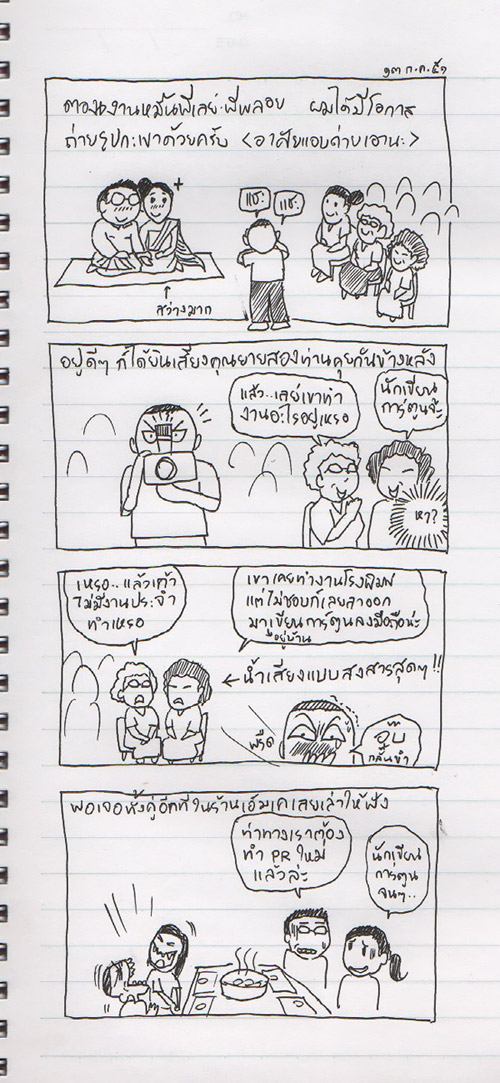 ๑๓ ก.ค. ๕๑
ตอนงานหมั้นพี่เลย์-พี่พลอย ผมได้มีโอกาส
ถ่ายรูปกะเขาด้วยครับ <อาศัยแอบถ่ายเอานะ>
แชะ
แชะ
สว่างมาก
อยู่ดีๆ ก็ได้ยินเสียงคุณยายสองท่านคุยกันข้างหลัง
แล้ว..เลย์เขาทำ
งานอะไรอยู่เหรอ
นักเขียน
การ์ตูนจ้ะ
หา?
เหรอ..แล้วเค้า
ไม่มีงานประจำ
ทำเหรอ
เขาเคยทำงานโรงพิมพ์
แต่ไม่ชอบก็เลยลาออก
มาเขียนการ์ตูนลงมือถือน่ะ
อยู่บ้าน
← น้ำเสียงแบบสงสารสุดๆ!!
พรืด
อุ๊บ
กลั้นขำ
พอเจอทั้งคู่อีกทีในร้านเอ็มเคเลยเล่าให้ฟัง
ท่าทางเราต้อง
ทำ PR ใหม่
แล้วล่ะ
นักเขียน
การ์ตูน
จนๆ..